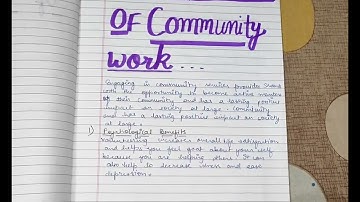 OF Community
work...
Engaging in community service provides
with the opportunity to become active members
of their community and has a lasting positive
impact on society at large. community
and has a lasting positive impact on society
at large.
1) Psychological Benefits
Volunteering increases overall life satisfaction
and helps you feel good about your self
because you are helping others. It can
also help to decrease stress and ease
depression.